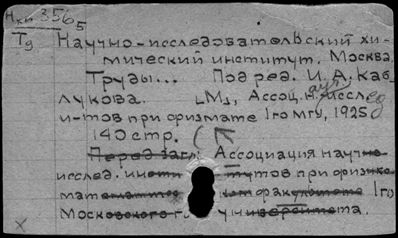 Н хи 356 5
Тд Научно-исследовательский хи-
мический институт. Москва.
Труды... Под ред. И. А. Каб-
лукова. [М], Ассоц. н. иссл
и-тов при физмате 1го МГУ, 1925
140 стр.
Перед загл: Ассоциация научно
исслед. институтов при физико
математ факультете 1го
Московского г. университета.